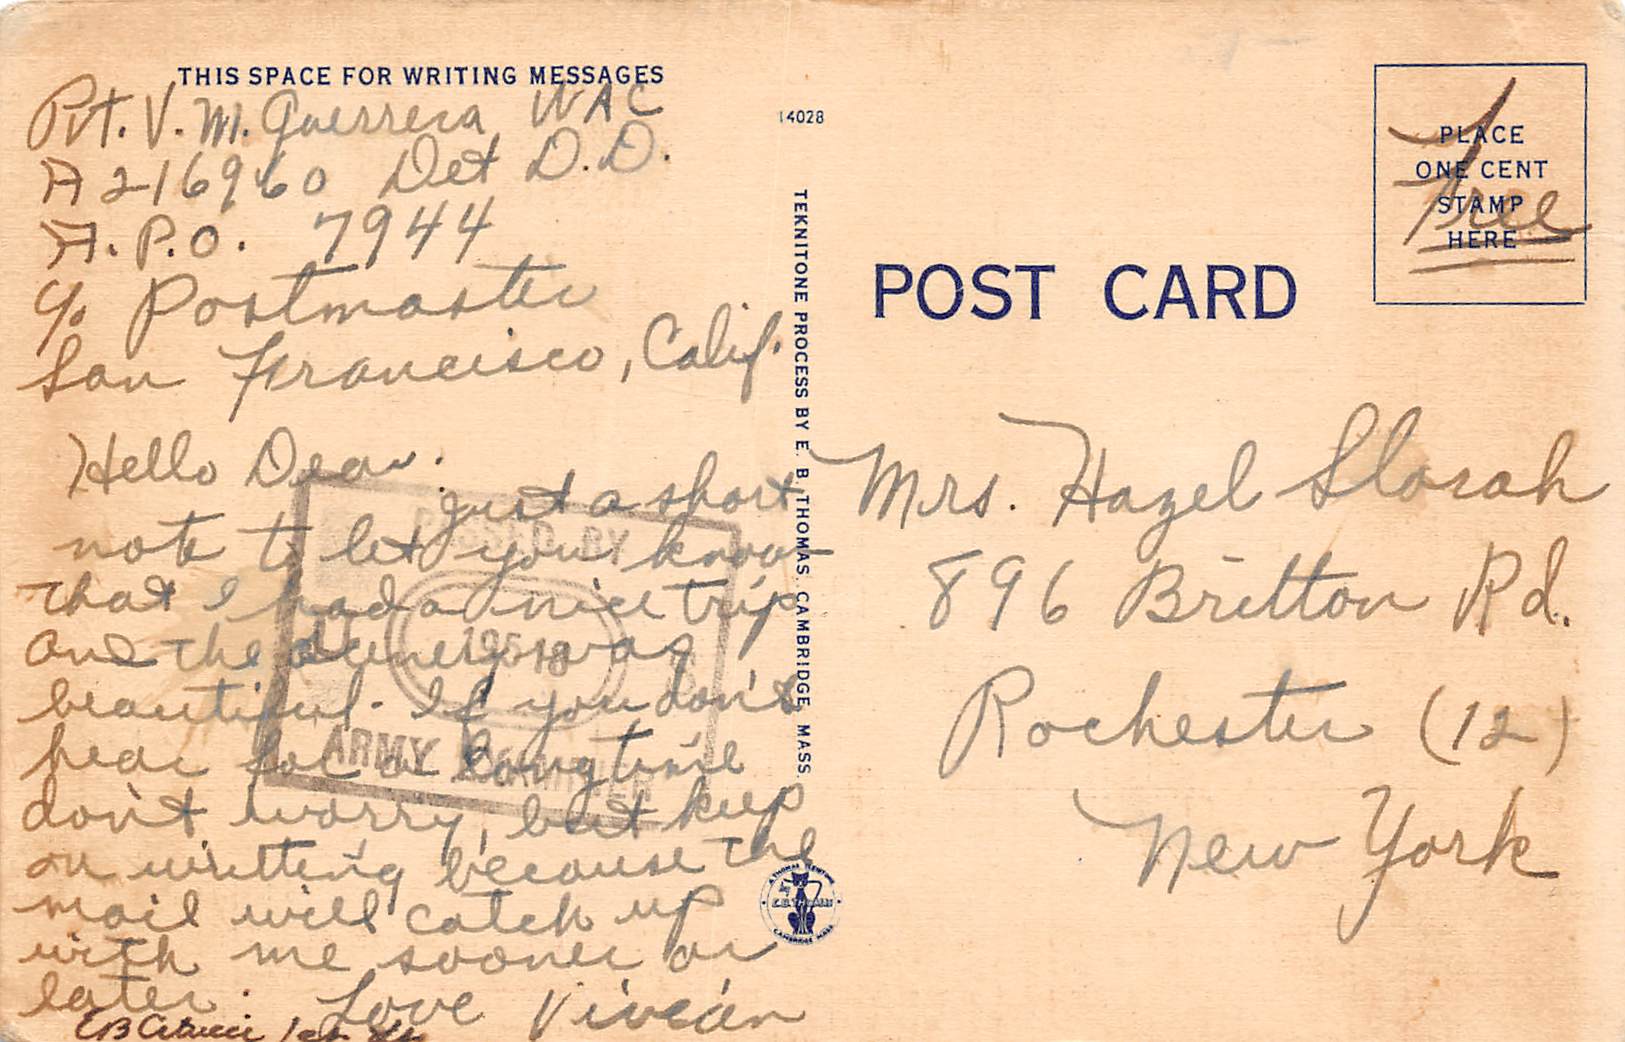 THIS SPACE FOR WRITING MESSAGES
Pvt. V. M. Guerrera WAC
A216960 Det D.D.
A.P.O. 7944
c/o Postmaster
San Francisco, Calif.
Hello Dear.
Just a short
note to let you know
that I had a nice trip
and the scenery was
beautiful. If you don't
hear for a long time
don't worry, but keep
on writting because the
mail will catch up
with me sooner or
later. Love Vivian
PASSED BY
ARMY EXAMINER
14028
TEKNITONE PROCESS BY E. B. THOMAS, CAMBRIDGE, MASS.
E.B. THOMAS
CAMBRIDGE MASS.
POST CARD
PLACE
ONE CENT
STAMP
HERE
Free
Mrs. Hazel Slorah
896 Britton Rd.
Rochester (12)
New York